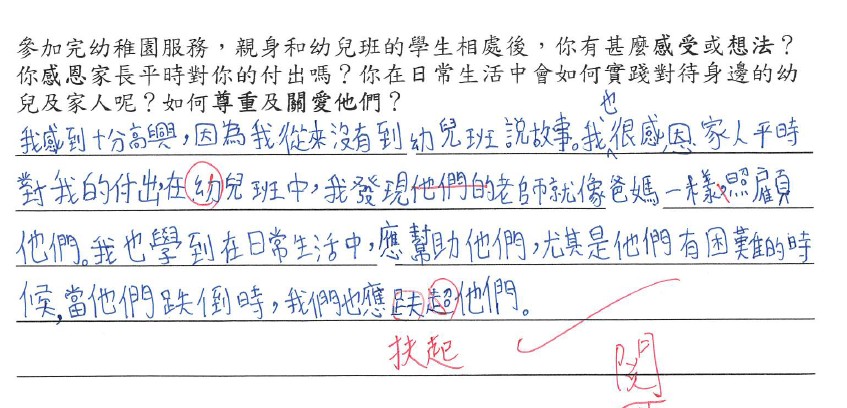 參加完幼稚園服務，親身和幼兒班的學生相處後，你有甚麼感受或想法？
你感恩家長平時對你的付出嗎？你在日常生活中會如何實踐對待身邊的幼
兒及家人呢？如何尊重及關愛他們？
也
我感到十分高興，因為我從來沒有到幼兒班說故事。我很感恩家人平時
對我的付出，在幼兒班中，我發現他們的老師就像爸媽一樣照顧
他們。我也學到在日常生活中，應幫助他們，尤其是他們有困難的時
候，當他們跌倒時，我們也應趺超他們。
扶起
閱